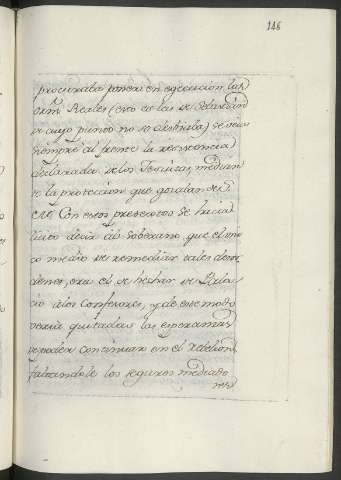 146
procuraba poner en egecucion las
orn̄s Reales (esto es las de Soberano
de cuyo punto no se
siempre al frente la resistencia
declarada de los Jesuitas, median
te la proteccion que gozaban de
Con estos presupuestos se hacia
licito decir al Soberano, que el uni
co medio de remediar tales desor
denes, era el de hechar de Pala
cio â los Confesores, y de este modo
veria quitadas las esperanzas
de poder continuar en el rebelion,
faltandole los seguros mediado
res